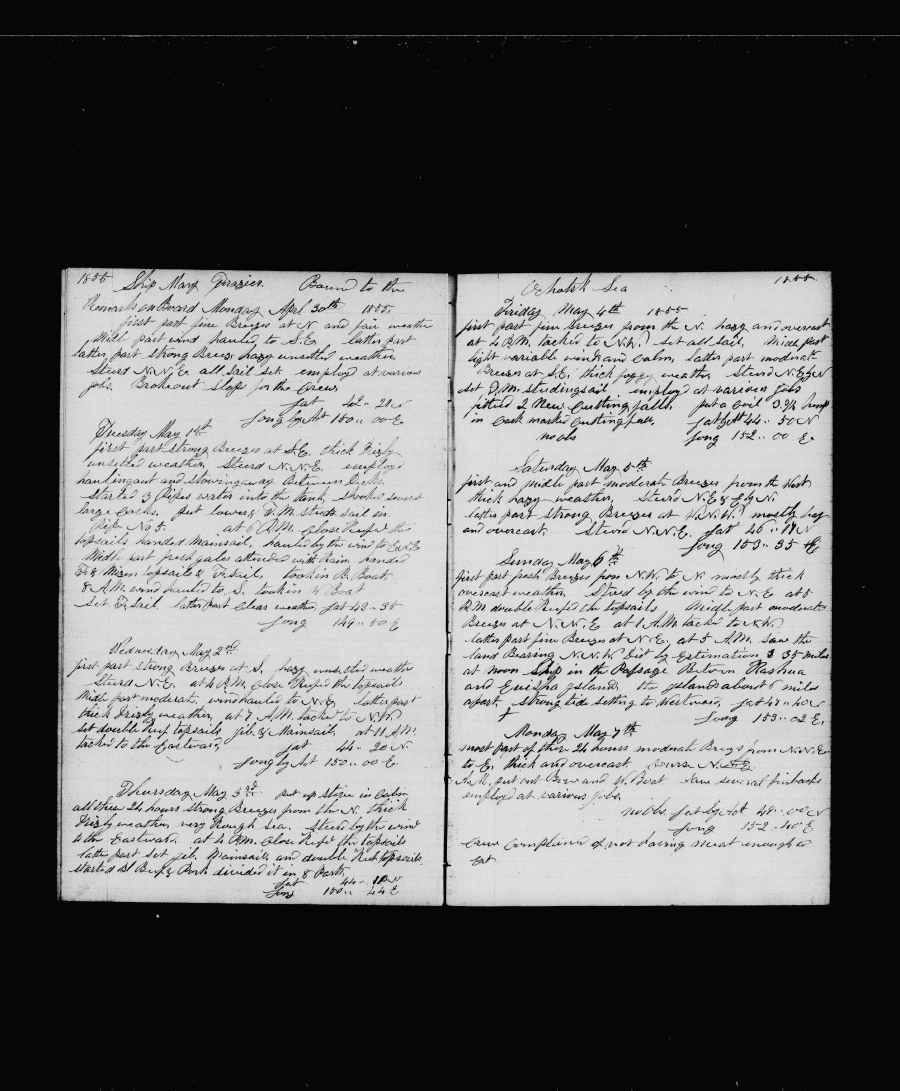 1855 Ship Mary Frazier Bound to the
Remarks on Board Monday Aprl 30th 1855
first part fine Breezes at N and fair weather
Midl part wind hauled to S.E latter part
latter part strong Breeze hazy unsettled weather
Steerd N.N.E. all sail set employd at various
jobs. Broke out slops for the Crew
Lat 42 .. 21 N
Long by Act 150 .. 00 E
Tuesday May 1st
first part strong Breezes at S.E. thick
unsettled weather, Steerd N.N.E. employd
out and stowing away Between Decks.
Started 3 Pipes water into the tank,
large Casks. put lower & sail in
Pipe No 5. at 6 P.M. Close Reeft the
topsails handed Mainsail, hauled by the wind to E.N.E
Midl part fresh gales attended with Rain handed
F & Mizen topsails & F. sail, took in B. Boat
8 A.M. wind hauled to S. took in Boat
Set F. sail latter part Clear weather Lat 43 .. 35
Long 149 .. 50 E
Wednesday May 2nd
first part strong Breezes at S. hazy unsettled weather
Steerd N.E. at 4 P.M. Close Reeft the topsails
Midl part moderate wind hauled to N.E. latter part
thick Drizly weather, at 7 A.M. tackd to N.W.
set double Reef topsails jib, & Mainsail, at 11 A.M.
tackd to the Eastward, Lat 44 .. 20 N
Long by Act 150 .. 00 E
Thursday May 3rd put up Stove in Cabin
all these 24 hours strong Breezes from the N. thick
Drizly weather very Rough Sea. Steerd by the wind
to the Eastward. at 4 P.M. Close Reeft the topsails
latter part set jib, Mainsail, and double Reef topsails.
started Bl Beef & Pork divided it in 8 Parts.
Lat 44 .. N
Long 150 .. 44 E
Ochotsk Sea 1855
Friday May 4th 1855
first part fine Breezes from the N. hazy and overcast
at 4 P.M. tacked to N.W. set all sail, Midl part
light variable winds and Calm, latter part moderate
Breezes at S.E. thick foggy weather Steerd N.E by N
set studingsail employd at various jobs
fitted 2 New Cutting falls. put a Coil 3 3/4 hemp
in Cask marked Cutting falls. Lat by Act 44 .. 50 N
no obs Long 152 .. 00 E
Saturday May 5th
first and midle part moderate Breezes from the West
thick hazy weather, Steerd N.E & E by N.
latter part strong Breezes at W.N.W. mostly hazy
and overcast. Steerd N.N.E. Lat 46 .. 17 N
Long 153 .. 35 E
Sunday May 6th
first part fresh Breezes from N.W. to N. mostly thick
overcast weather, Steerd by the wind to N.E at 5
P.M double Reeft the topsails Midle part moderate
Breezes at N.N.E at 1 A.M tackd to N.W.
latter part fine Breezes at N.E. at 5 A.M. Saw the
land Bearing N.N.W. Dist by Estimation 35 miles
at noon Ship in the Passage Betwen Rashua
and island. the islands about 6 miles
apart, Strong tide setting to Westward, Lat 47 .. 40 N
Long 153 .. 02 E.
Monday May 7th
most part of thes 24 hours moderate Breezes from N.N.E
to E. thick and overcast. Course N.N.E
A.M. put out Bow and W. Boat. Saw several finbacks
employd at various jobs.
no obs. Lat by Act 48 .. 00 N
Long 152 .. 40 E
Crew Complained of not having meat enough to
eat